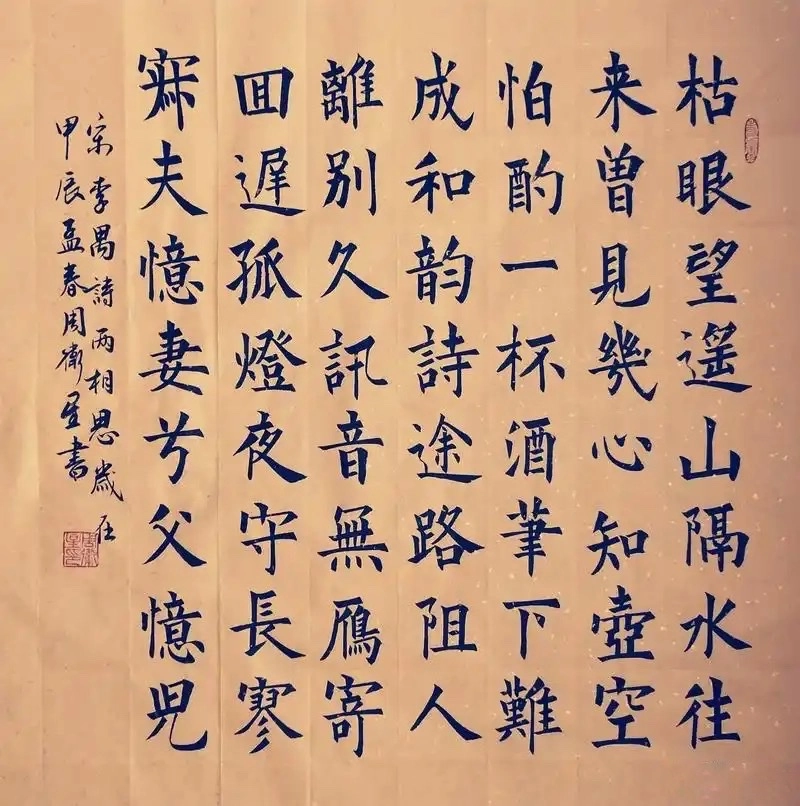 枯眼望遥山隔水往
来曾見幾心知壺空
怕酌一杯酒筆下難
成和韵詩途路阻人
離别久訊音無鴈寄
囬遲孤燈夜守長寥
寂夫憶妻兮父憶兒
宋李禺詩兩相思歲在
甲辰孟春周衛星書